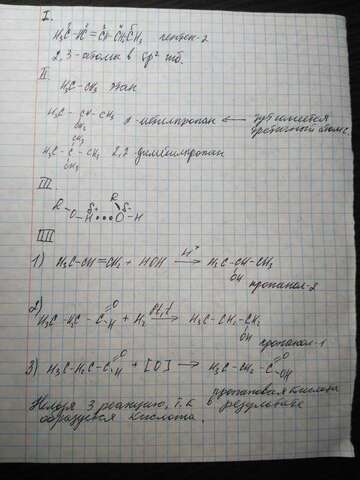 I.
H₃C - HC = CH - CH₂CH₃ пентен-2
2,3-атомы в sp² гиб.
II.
H₃C - CH₃ этан
H₃C - CH - CH₃ 2-метилпропан ← тут имеется
CH₃ третичный атом C
CH₃
H₃C - C - CH₃ 2,2-диметилпропан
CH₃
III.
R R
O - H δ+ ••• O δ- - H
IIII
1) H₃C-CH=CH₂ + HOH H⁺ → H₃C-CH-CH₃
OH пропанол-2
2) O
H₃C - H₂C - C - H + H₂ Pt, t → H₃C - CH₂ - CH₂
OH
пропанол-1
3) H₃C-H₂C-C O H + [O] → H₃C-CH₂-C O OH
пропановая кислота
Нельзя 3 реакцию, т.к в результате
образуется кислота.